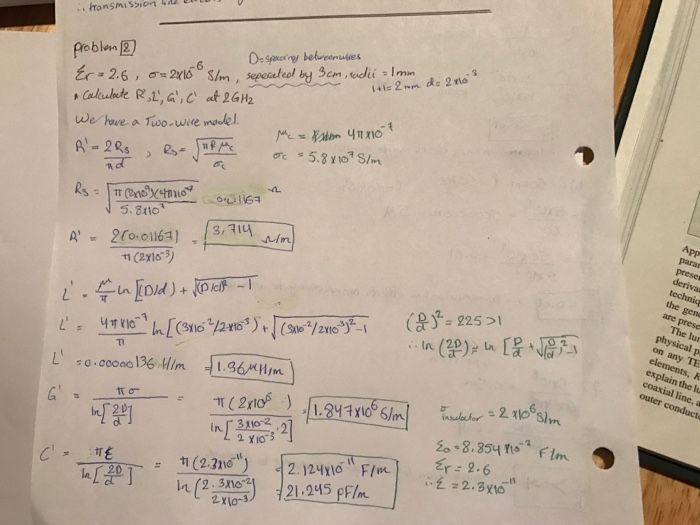 ∴ transmission line
problem [2]
D = spacing between wires
εr = 2.6 , σ = 2x10^-6 S/m , seperated by 3cm , radii = 1mm
1+1 = 2mm d = 2x10^-3
• Calculate R', L', G', C' at 2GHz
We have a Two-wire model.
R' = 2Rs/πd , Rs = √(πfμc/σc) μc = 4πx10^-7
σc = 5.8x10^7 S/m
Rs = √(π(2x10^9)(4πx10^-7)/5.8x10^7) 0.01167 Ω
R' = 2(0.01167)/π(2x10^-3) = 3,714 Ω/m
L' = μ/π ln[(D/d) + √(D/d)² - 1
L' = 4πx10^-7/π ln[(3x10^-2/2x10^-3) + √(3x10^-2/2x10^-3)² - 1 (D/d)² = 225 > 1
∴ ln(2D/d) ≈ ln[D/d + √(D/d)² - 1
L' = 0.00000136 H/m = 1.36 μH/m
G' = πσ/ln[2D/d] = π(2x10^6)/ln[3x10^-2/2x10^-3 · 2] = 1.847x10^6 S/m σinsulator = 2x10^6 S/m
C' = πε/ln[2D/d] = π(2.3x10^-11)/ln(2·3x10^-2/2x10^-3) = 2.124x10^-11 F/m
= 21.245 pF/m
ε0 = 8.854x10^-12 F/m
εr = 2.6
∴ ε = 2.3x10^-11
App
param
presen
deriva
techniq
the gen
are pre
The lu
physical p
on any TE
elements, R
explain the lu
coaxial line, a
outer conduct